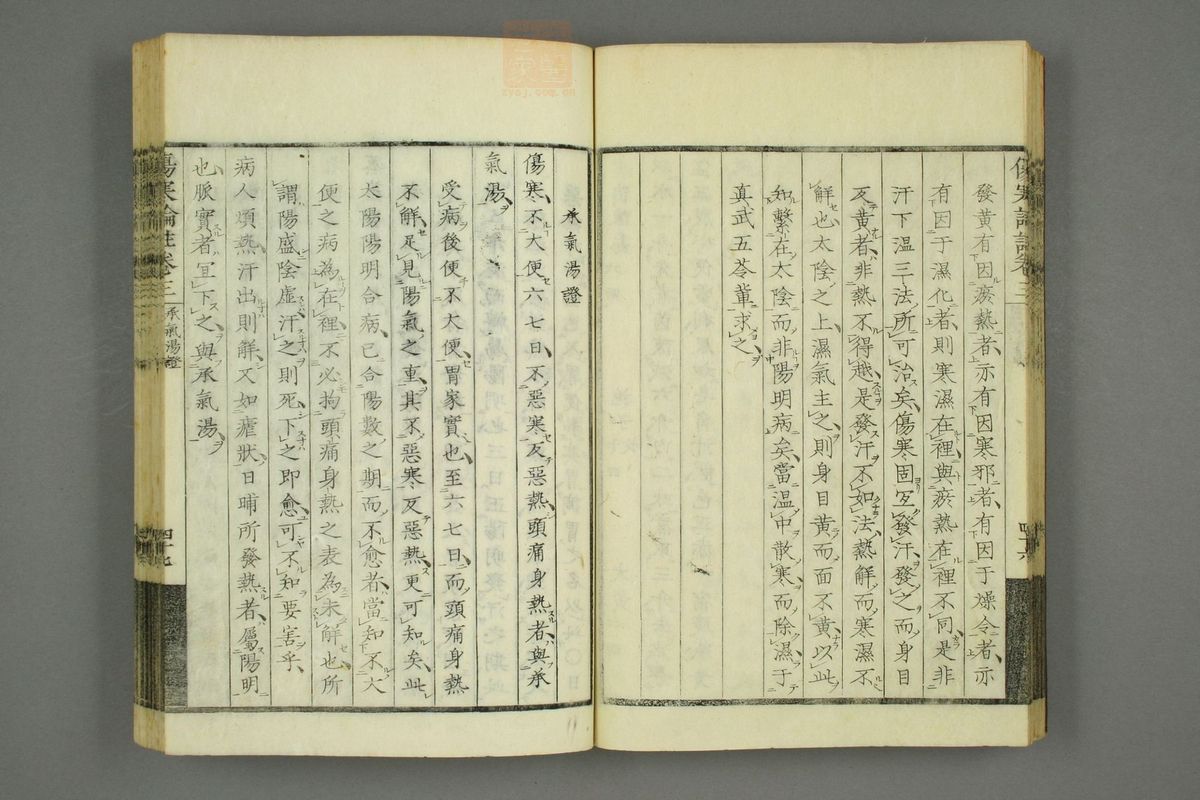 發黃有因瘀熱者亦有因寒邪者有因于燥令者亦
有因于濕化者則寒濕在裡與瘀熱在裡不同是非
汗下温三法所可治矣傷寒固宜發汗發之而身目
反黃者非熱不得越是發汗不如法熱解而寒濕不
解也太陰之上濕氣主之則身目黃而面不黃以此
知繫在太陰而非陽明病矣當温中散寒而除濕于
真武五苓輩求之
傷寒論註卷三
四十六
承氣湯證
傷寒不大便六七日不惡寒反惡熱頭痛身熱者與承
氣湯
受病後便不大便胃家實也至六七日而頭痛身熱
不解足見陽氣之重其不惡寒反惡熱更可知矣此
太陽陽明合病已合陽數之期而不愈者當知不大
便之病為在裡不必拘頭痛身熱之表為未解也所
謂陽盛陰虛汗之則死下之即愈可不知要害乎
病人煩熱汗出則解又如瘧狀日晡所發熱者屬陽明
也脈實者宜下之與承氣湯
傷寒論註卷三
承氣湯證
四十七
zysj.com.cn